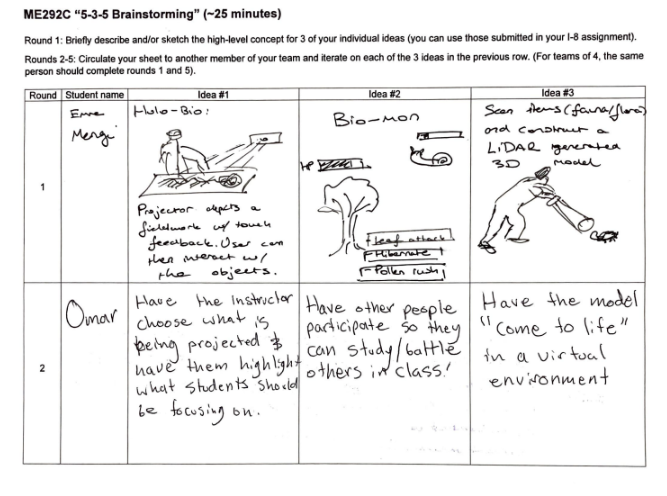 ME292C “5-3-5 Brainstorming” (~25 minutes)
Round 1: Briefly describe and/or sketch the high-level concept for 3 of your individual ideas (you can use those submitted in your I-8 assignment).
Rounds 2-5: Circulate your sheet to another member of your team and iterate on each of the 3 ideas in the previous row. (For teams of 4, the same
person should complete rounds 1 and 5).
Round Student name Idea #1 Idea #2 Idea #3
1
Emre
Mengi
Holo-Bio:
Projector depicts a
fieldwork w/ touch
feedback. User can
then interact w/
the objects.
Bio-mon
HP
HP
Leaf attack
Hibernate
Pollen rush
Scan items (fauna/flora)
and construct a
LiDAR generated
3D model
2
Omar
Have the Instructor
choose what is
being projected &
have them highlight
what students should
be focusing on.
Have other people
participate so they
can study/battle
others in class!
Have the model
"come to life"
in a virtual
environment